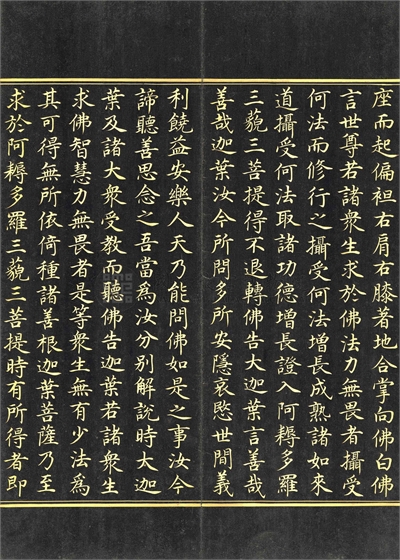 座而起偏袒右肩右膝著地合掌向佛白佛
言世尊若諸衆生求於佛法力無畏者攝受
何法而修行之攝受何法增長成熟諸如來
道攝受何法取諸功德增長證入阿耨多羅
三藐三菩提得不退轉佛告大迦葉言善哉
善哉迦葉汝今所問多所安隱哀愍世間義
利饒益安樂人天乃能問佛如是之事汝今
諦聽善思念之吾當爲汝分別解說時大迦
葉及諸大衆受教而聽佛告迦葉若諸衆生
求佛智慧力無畏者是等衆生無有少法爲
其可得無所依倚種諸善根迦葉菩薩乃至
求於阿耨多羅三藐三菩提時有所得者即